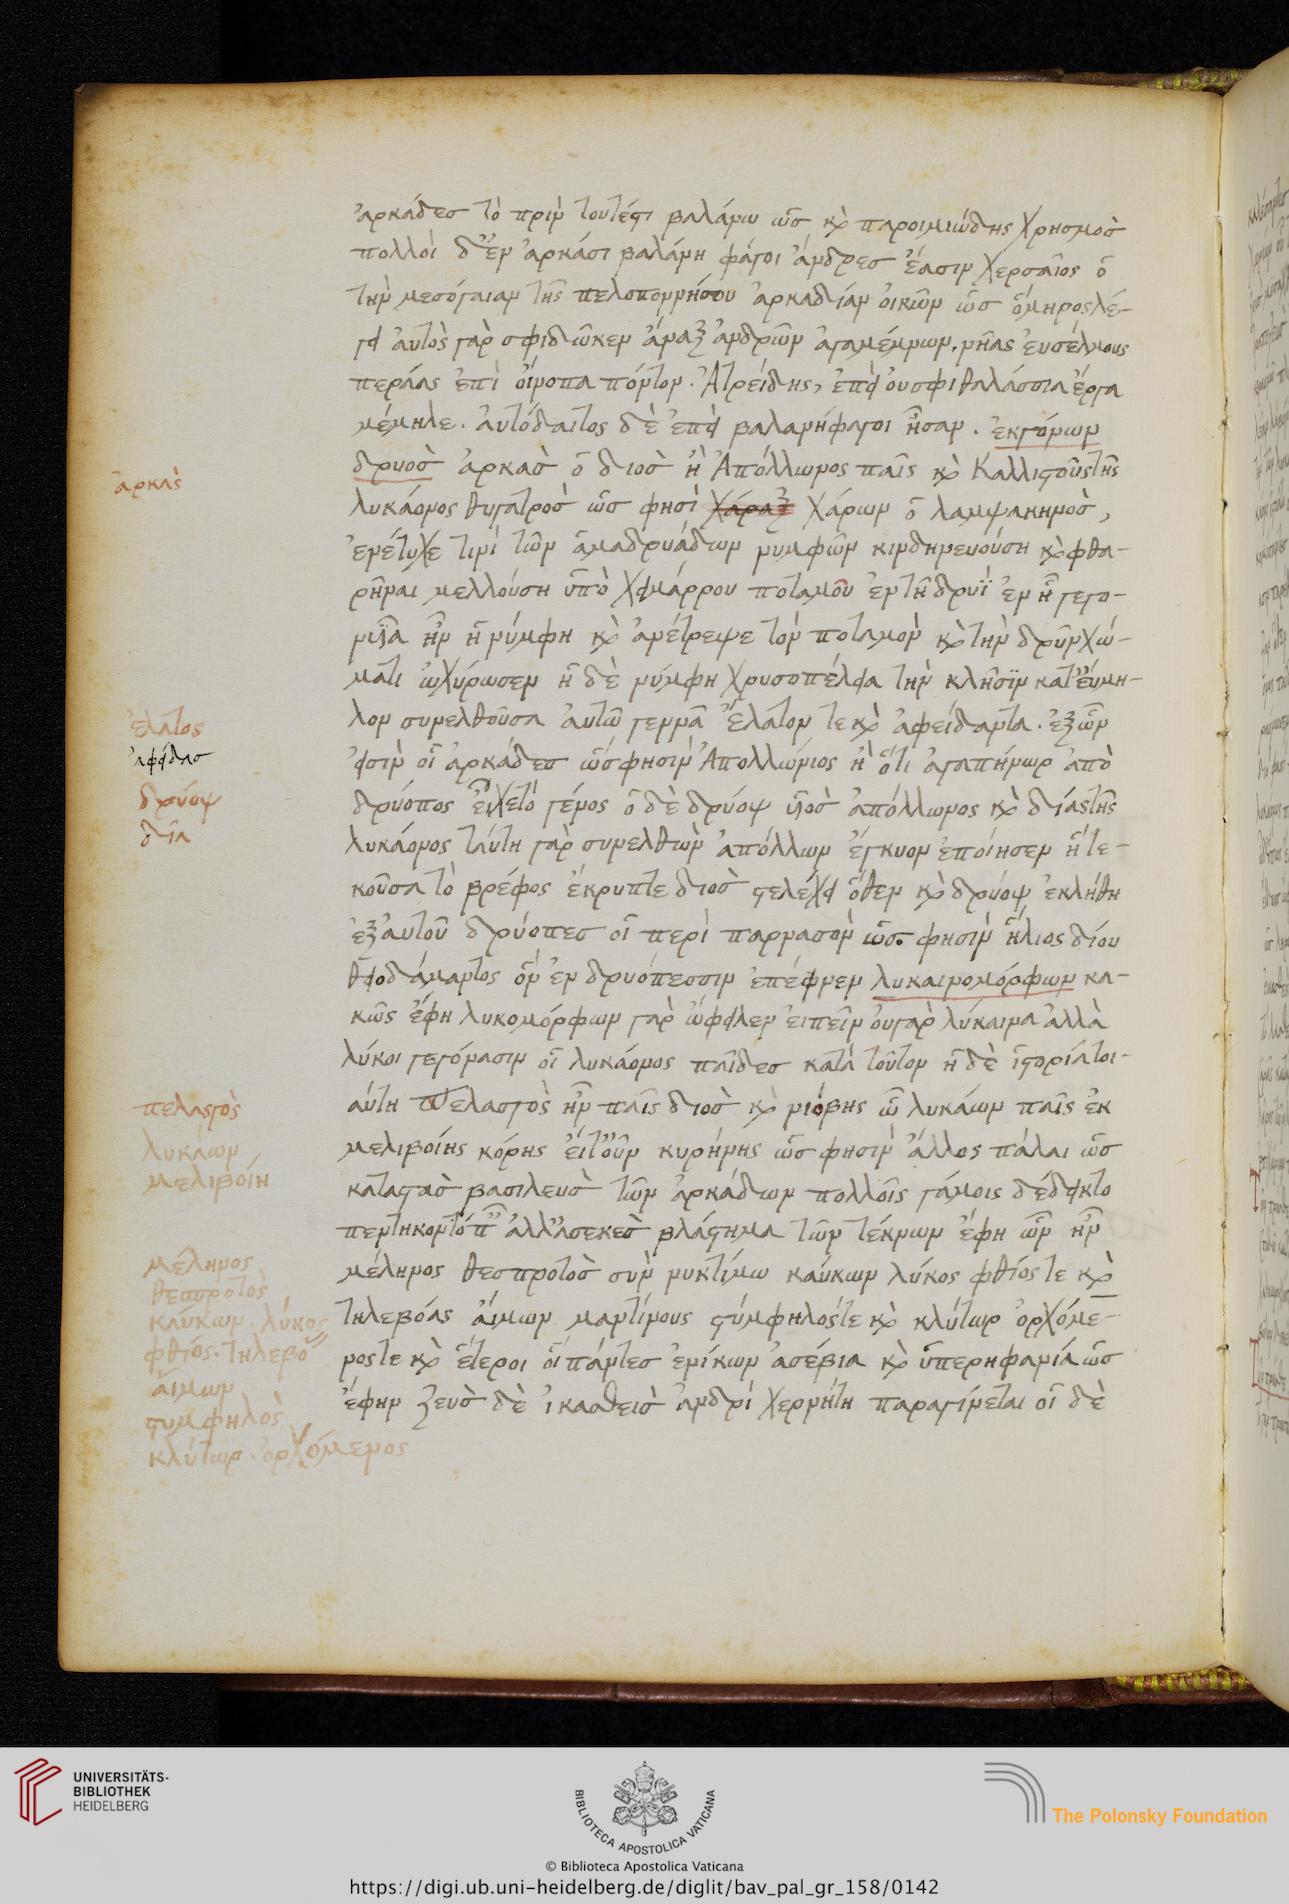 ἀρκάδες τὸ πρὶν τουτέστι βαλάνω ὡς καὶ παροιμιώδης χρησμὸς
πολλοὶ δ' ἐν ἀρκάσι βαλάνη φάγοι ἄνδρες ἔασιν χερσαῖος ὁ
τὴν μεσόγαιαν τῆς πελοποννήσου ἀρκαδίαν οἰκῶν ὡς ὅμηρος λέ-
γει αὐτὸς γὰρ σφι δῶκεν ἄναξ ἀνδρῶν ἀγαμέμνων. νῆας ἐυσέλμους
περάας ἐπὶ οἴνοπα πόντον. Ἀτρείδης, ἐπεὶ οὐ σφι θαλάσσια ἔργα
μέμηλε. Αὐτόδαιτος δὲ ἐπεὶ βαλανήφαγοι ἦσαν. ἐκγόνων
ἀρκὰς
δρυὸς ἀρκὰς ὁ διὸς ἢ Ἀπόλλωνος παῖς καὶ Καλλιστοῦς τῆς
λυκάονος θυγατρὸς ὡς φησὶ χάραξ χάρων ὁ λαμψακηνὸς,
ἐνέτυχε τινὶ τῶν ἁμαδρυάδων νυμφῶν κινδηνευούση καὶ φθα-
ρῆναι μελλούση ὑπὸ χειμάρρου ποταμοῦ ἐν τῆ δρυῒ ἐν ᾗ γεγο-
νυῖα ἦν ἡ νύμφη καὶ ἀνέτρεψε τὸν ποταμὸν καὶ τὴν δρῦν χώ-
ματι ὠχύρωσεν ἡ δὲ νύμφη χρυσοπέλεια τὴν κλῆσϊν κατ' εὔμη-
ἔλατος
λον συνελθοῦσα αὐτῶ γεννᾶ Ἔλατον τε καὶ ἀφείδαντα. ἐξ ὧν
ἀφείδας
εἰσὶν οἱ ἀρκάδες ὥς φησιν Ἀπολλώνιος ἢ ὅτι ἀγαπήνωρ ἀπὸ
δρύοψ
δρύοπος εἶχε τὸ γένος ὁ δὲ δρύοψ υἱὸς ἀπόλλωνος καὶ δίας τῆς
δῖα
λυκάονος ταύτη γὰρ συνελθὼν ἀπόλλων ἔγκυον ἐποίησεν ἡ τε-
κοῦσα τὸ βρέφος ἔκρυπτε διὸς στελέχει ὅθεν καὶ δρύοψ ἐκλήθη
ἐξ αὐτοῦ δρύοπες οἱ περὶ παρνασὸν ὡς φησὶν ἥλιος δίου
λυκαινομόρφων κα-
κῶς ἔφη λυκομόρφων γὰρ ὤφειλεν εἰπεῖν οὐ γὰρ λύκαινα ἀλλὰ
λύκοι γεγόνασιν οἱ λυκάονος παῖδες κατὰ τοῦτον ἡ δὲ ἱστορία τοι-
πελασγὸς
αύτη Πελασγὸς ἦν παῖς διὸς καὶ νιόβης ὧ λυκάων παῖς ἐκ
λυκάων
μελιβοίης κόρης εἴτ' οὖν κυρήνης ὡς φησὶν ἄλλος πάλαι ὡς
μελιβοίη
καταστὰς βασιλεὺς τῶν ἀρκάδων πολλοῖς γάμοις δέδεικτο
βλάστημα τῶν τέκνων ἔφη ὧν ἦν
μέληνος
μέληνος θεσπροτὸς σὺν νυκτίμω καύκων λύκος φθίος τε καὶ
θεσπροτὸς
καύκων. λύκος
τηλεβόας αἵμων μαντίνους στύμφηλός τε καὶ κλύτωρ ὀρχόμε-
φθίος. τηλεβό
νος τε καὶ ἕτεροι οἱ πάντες ἐνίκων ἀσέβια καὶ ὑπερηφανία ὡς
αἵμων
ἔφην ζεὺς δὲ ἰκασθεὶς ἀνδρὶ χερνήτη παραγίνεται οἱ δὲ
στυμφηλὸς
κλύτωρ. ὀρχόμενος
UNIVERSITÄTS-
BIBLIOTHEK
HEIDELBERG
BIBLIOTHECA APOSTOLICA VATICANA
The Polonsky Foundation
© Biblioteca Apostolica Vaticana
https://digi.ub.uni-heidelberg.de/diglit/bav_pal_gr_158/0142